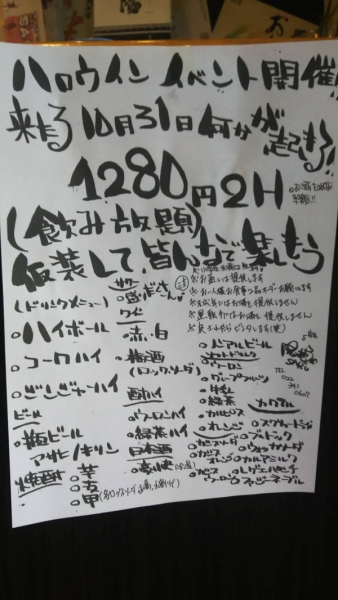 ハロウィン イベント開催!!
来たる10月31日何かが起きる!
1280円2H
(飲み放題)
仮装して、皆んなで楽しもう
(ドリンクメニュー)
○ハイボール
○コークハイ
○ジンジャーハイ
ビール
○瓶ビール
アサヒ/キリン
焼酎
○芋
○麦
○甲
サワー
ワイン
○赤、白
○梅酒
(ロック、ソーダ)
酎ハイ
○ウーロンハイ
○緑茶ハイ
日本酒
※お一人様お食事2品オーダーお願いします
※未成年にはお酒を提供しません
○ノンアルビール
○ウーロン
○緑茶
○カルピス
○オレンジ
カクテル
○カシスソーダ
○カシスオレンジ
○カシスウーロン
○スクリュードライバー
○ブルドック
○ウォッカソーダ
○カルアミルク
○レゲエパンチ
○ファジーネーブル
TEL
022